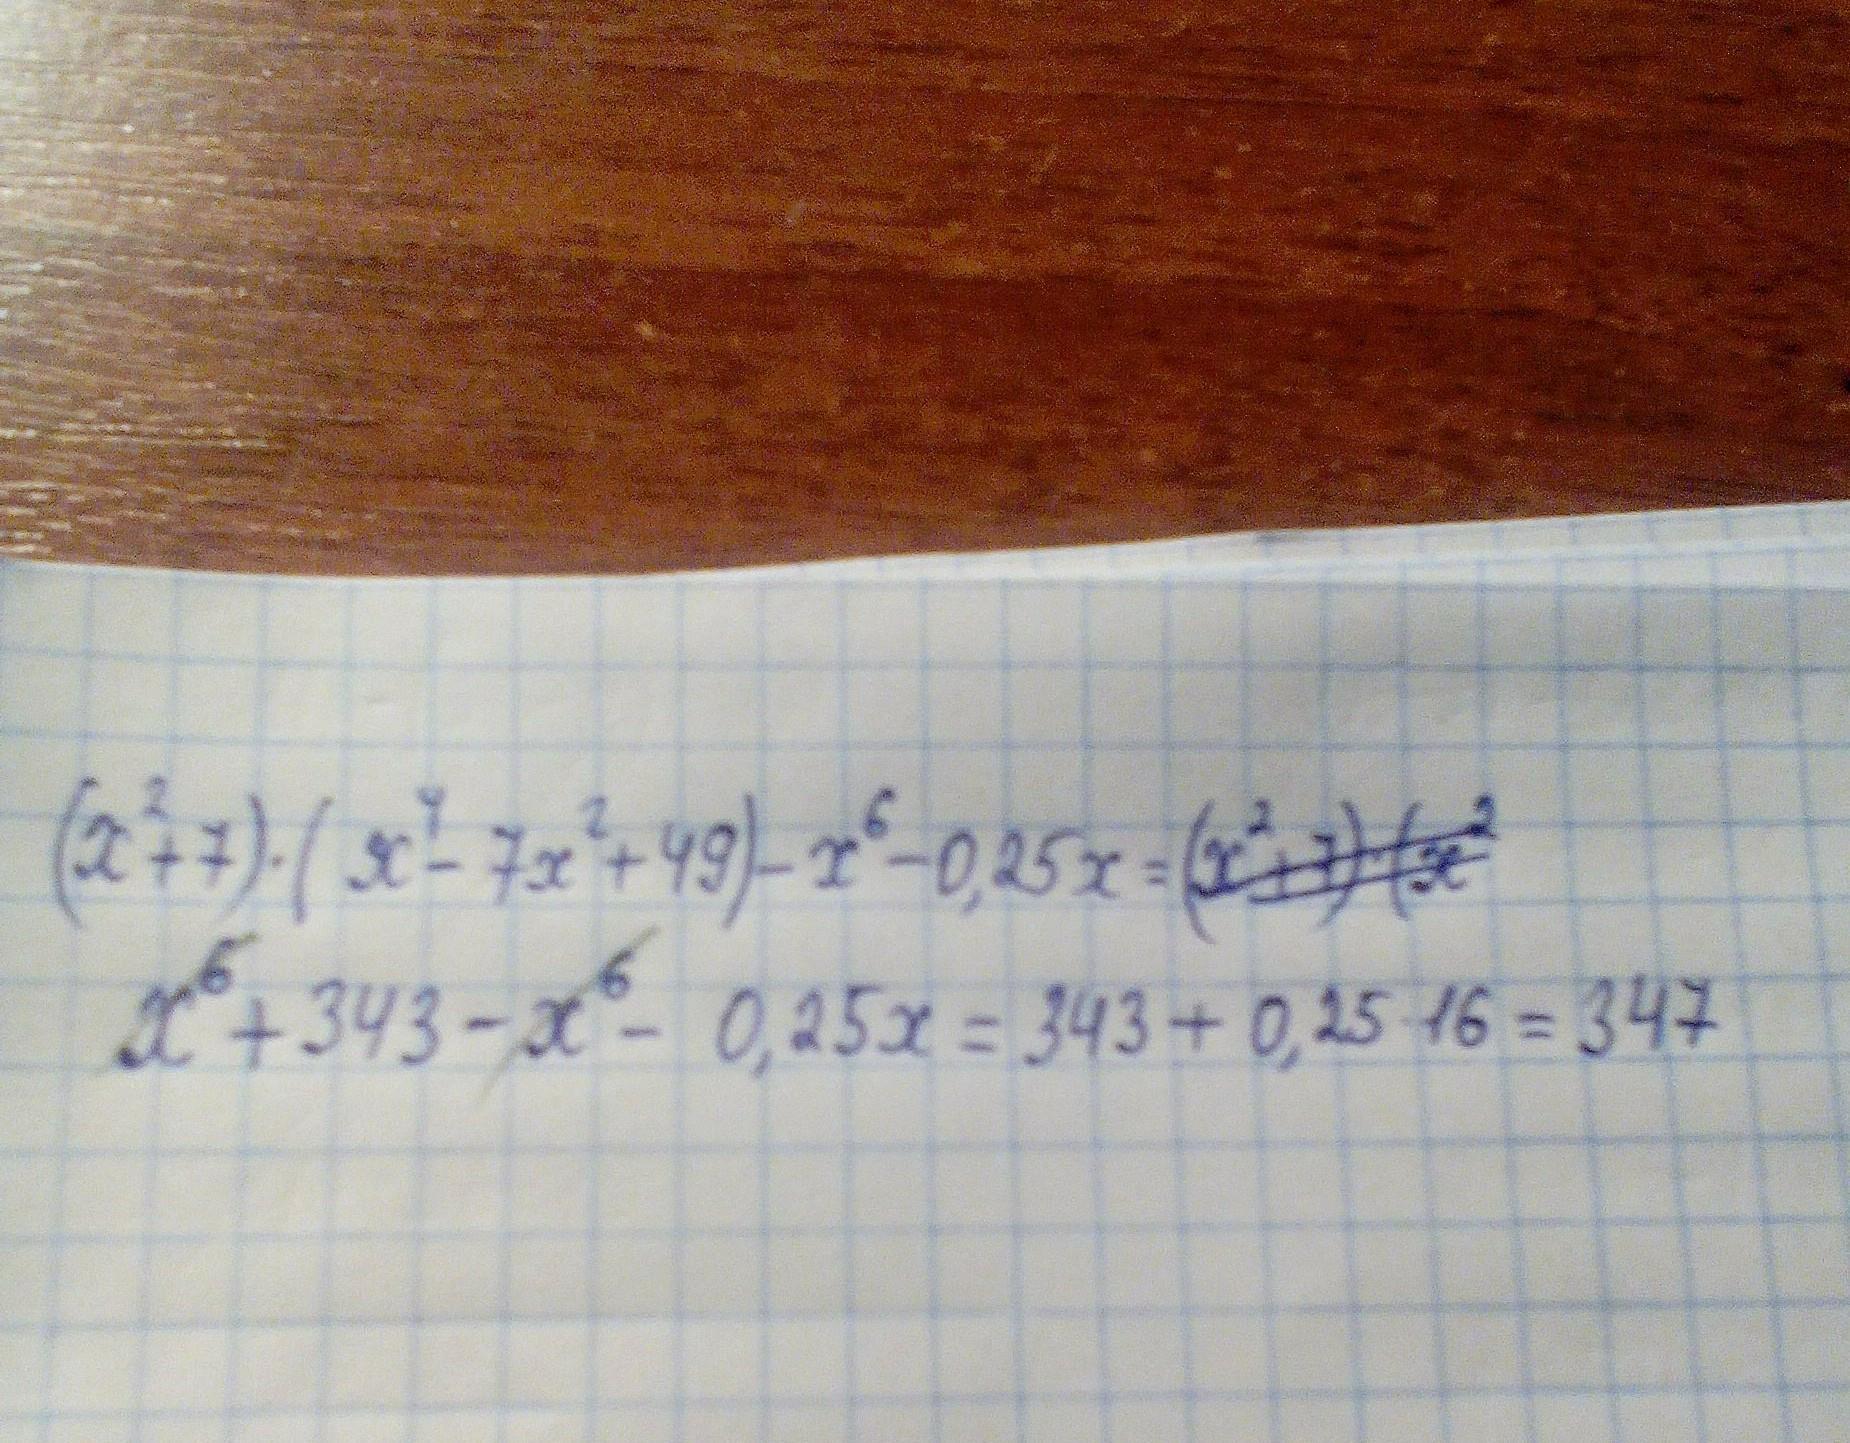 (x²+7)·(x⁴-7x²+49)-x⁶-0,25x=(x²+7)·(x²
x⁶+343-x⁶-0,25x=343+0,25·16=347